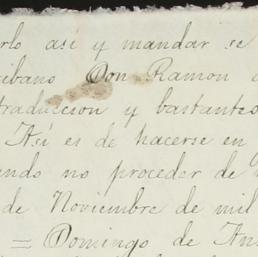 rlo así y mandar se
cribano Don Ramon
traduccion y bastante
Así es de hacerse en
endo no proceder de
de Noviembre de mil
= Domingo de An